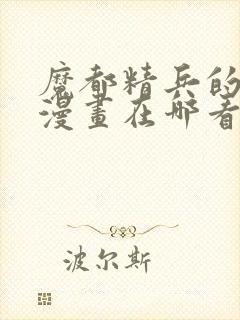 魔都精兵的
漫畫在哪看
波尔斯